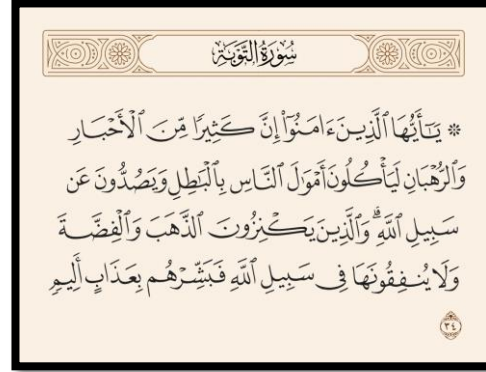 سُورَةُ التَّوْبَةِ
۞ يَـٰٓأَيُّهَا ٱلَّذِينَ ءَامَنُوٓا۟ إِنَّ كَثِيرًا مِّنَ ٱلْأَحْبَارِ
وَٱلرُّهْبَانِ لَيَأْكُلُونَ أَمْوَٰلَ ٱلنَّاسِ بِٱلْبَـٰطِلِ وَيَصُدُّونَ عَن
سَبِيلِ ٱللَّهِ ۗ وَٱلَّذِينَ يَكْنِزُونَ ٱلذَّهَبَ وَٱلْفِضَّةَ
وَلَا يُنفِقُونَهَا فِى سَبِيلِ ٱللَّهِ فَبَشِّرْهُم بِعَذَابٍ أَلِيمٍ
٣٤